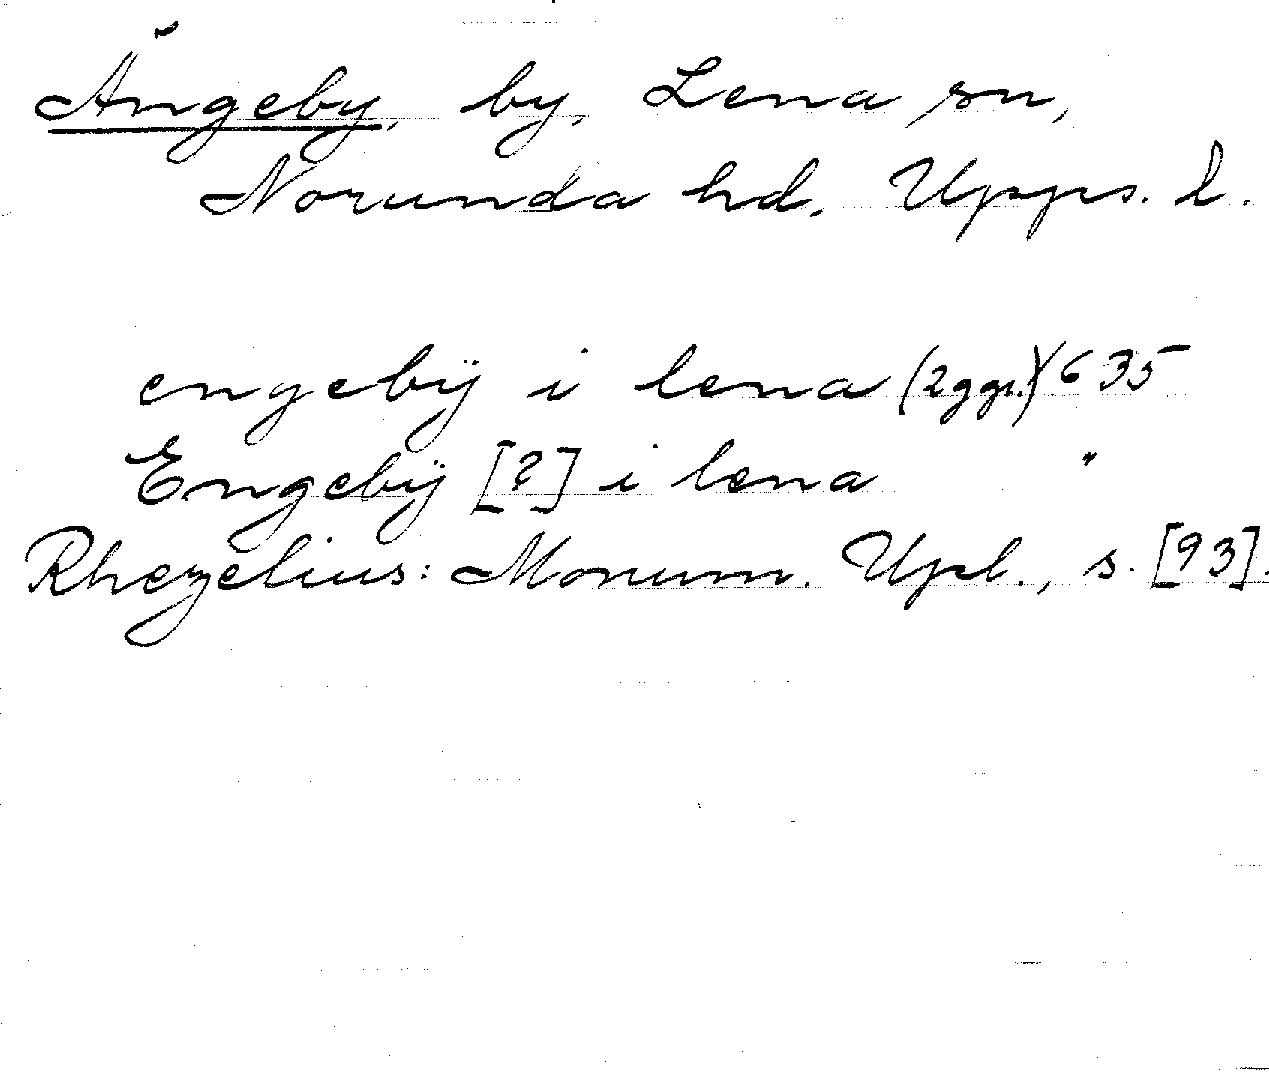 Ängeby, by, Lena sn,
Norunda hd, Upps. l.
engebÿ i lena (2ggr.) 1635
Engebÿ [?] i lena "
Rhezelius: Monum. Upl., s. [93].